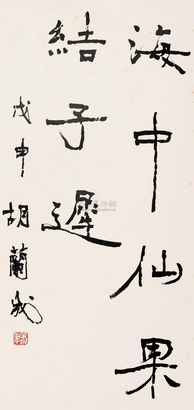 海中仙果
結子遲
戊申
胡蘭成